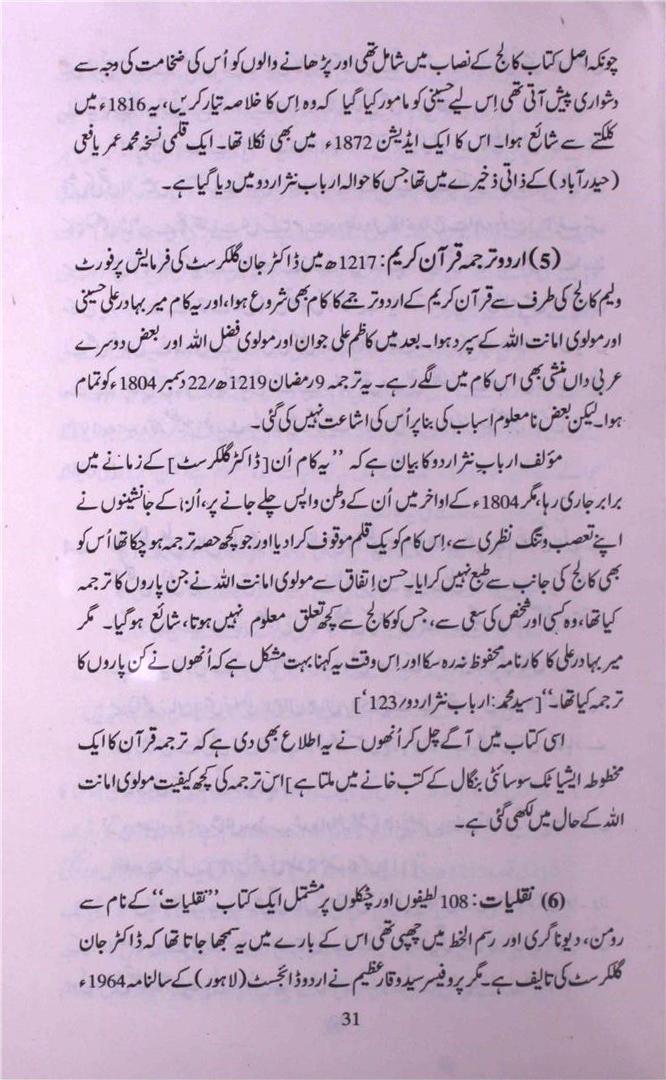 چونکہ اصل کتاب کالج کے نصاب میں شامل تھی اور پڑھانے والوں کو اُس کی ضخامت کی وجہ سے
دشواری پیش آتی تھی اِس لیے حسینی کو مامور کیا گیا کہ وہ اِس کا خلاصہ تیار کریں، یہ 1816ء میں
کلکتے سے شائع ہوا۔ اس کا ایک ایڈیشن 1872ء میں بھی نکلا تھا۔ ایک قلمی نسخہ محمد عمر یافعی
(حیدرآباد) کے ذاتی ذخیرے میں تھا جس کا حوالہ ارباب نثر اردو میں دیا گیا ہے۔
(5) اردو ترجمہ قرآن کریم: 1217ھ میں ڈاکٹر جان گلکرسٹ کی فرمایش پر فورٹ
ولیم کالج کی طرف سے قرآن کریم کے اردو ترجمے کا کام بھی شروع ہوا، اور یہ کام میر بہادر علی حسینی
اور مولوی امانت اللہ کے سپرد ہوا۔ بعد میں کاظم علی جوان اور مولوی فضل اللہ اور بعض دوسرے
عربی داں منشی بھی اس کام میں لگے رہے۔ یہ ترجمہ 9 رمضان 1219ھ/22 دسمبر 1804ء کو تمام
ہوا۔ لیکن بعض نامعلوم اسباب کی بنا پر اُس کی اشاعت نہیں کی گئی۔
مؤلف ارباب نثر اردو کا بیان ہے کہ ”یہ کام اُن [ڈاکٹر گلکرسٹ] کے زمانے میں
برابر جاری رہا، مگر 1804ء کے اواخر میں اُن کے وطن واپس چلے جانے پر، اُن کے جانشینوں نے
اپنے تعصب و تنگ نظری سے، اِس کام کو یک قلم موقوف کرا دیا اور جو کچھ حصہ ترجمہ ہو چکا تھا اُس کو
بھی کالج کی جانب سے طبع نہیں کرایا۔ حسنِ اتفاق سے مولوی امانت اللہ نے جن پاروں کا ترجمہ
کیا تھا، وہ کسی اور شخص کی سعی سے، جس کو کالج سے کچھ تعلق معلوم نہیں ہوتا، شائع ہوگیا۔ مگر
میر بہادر علی کا کارنامہ محفوظ نہ رہ سکا اور اِس وقت یہ کہنا بہت مشکل ہے کہ اُنھوں نے کن پاروں کا
ترجمہ کیا تھا۔“ [سید محمد: ارباب نثر اردو/123‘]
اسی کتاب میں آگے چل کر اُنھوں نے یہ اطلاع بھی دی ہے کہ ترجمہ قرآن کا ایک
مخطوطہ ایشیاٹک سوسائٹی بنگال کے کتب خانے میں ملتا ہے] اس ترجمہ کی کچھ کیفیت مولوی امانت
اللہ کے حال میں لکھی گئی ہے۔
(6) نقلیات: 108 لطیفوں اور چٹکلوں پر مشتمل ایک کتاب ”نقلیات“ کے نام سے
رومن، دیوناگری اور رسم الخط میں چھپی تھی اس کے بارے میں یہ سمجھا جاتا تھا کہ ڈاکٹر جان
گلکرسٹ کی تالیف ہے۔ مگر پروفیسر سید وقار عظیم نے اردو ڈائجسٹ (لاہور) کے سالنامہ 1964ء
31